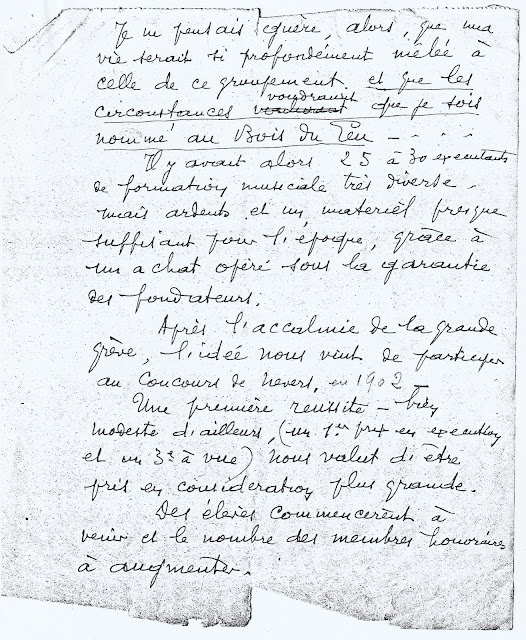 Je ne pensais guère, alors, que ma
vie serait si profondément mêlée à
celle de ce groupement et que les
voudraient
circonstances que je sois
nommé au Bois du
Il y avait alors 25 à 30 exécutants
de formation musicale très diverse -
mais ardents et un matériel presque
suffisant pour l'époque, grâce à
un achat opéré sous la garantie
des fondateurs.
Après l'accalmie de la grande
grève, l'idée nous vint de participer
au Concours de Nevers, en 1902 -
Une première réussite - bien
modeste d'ailleurs, (un 1er prix en exécution
et un 3e à vue) nous valut d'être
pris en considération plus grande.
Des élèves commencèrent à
venir et le nombre des membres honoraires
à augmenter.